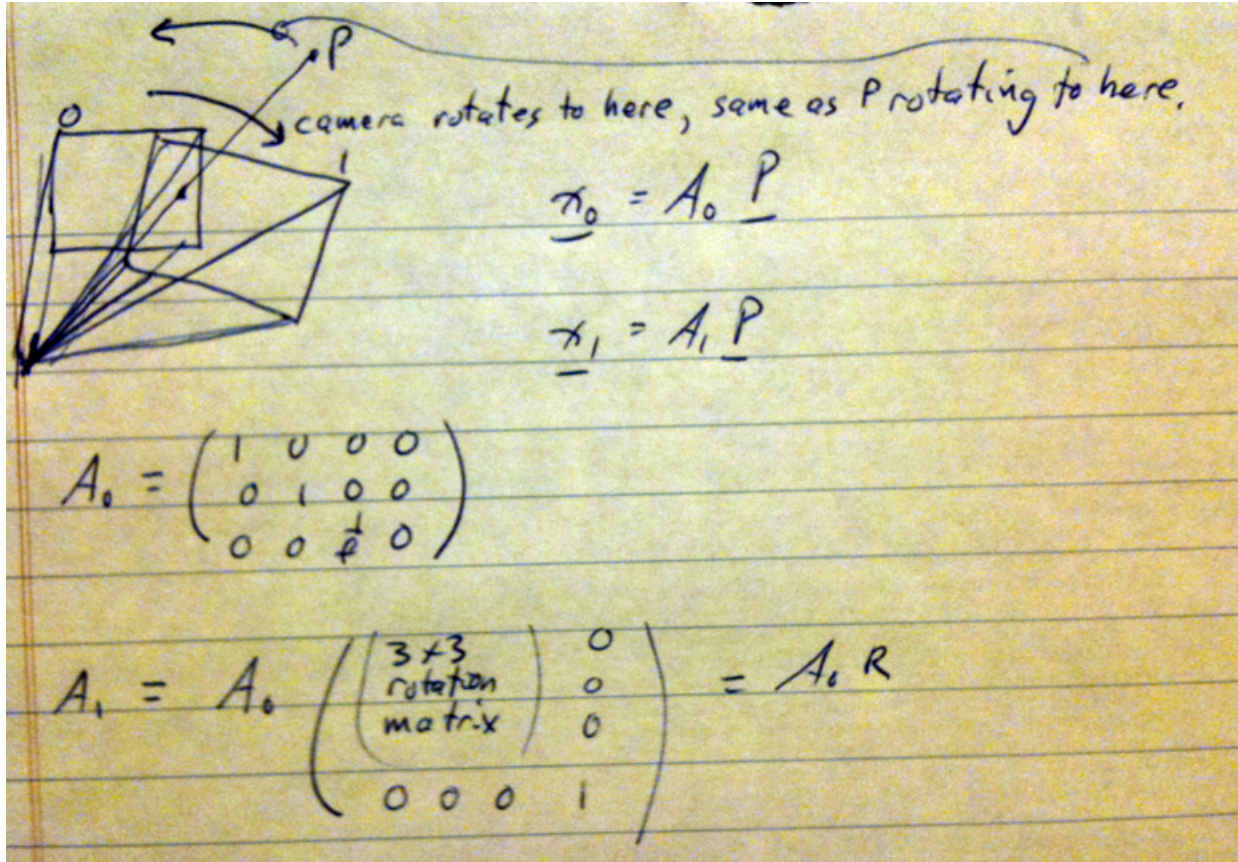 P
camera rotates to here, same as P rotating to here.
0
1
x₀ = A₀ P
x₁ = A₁ P
A₀ = ( 1 0 0 0
0 1 0 0
0 0 1/f 0 )
A₁ = A₀ ( ( 3x3 rotation matrix ) 0 0 0
0 0 0 1 ) = A₀ R